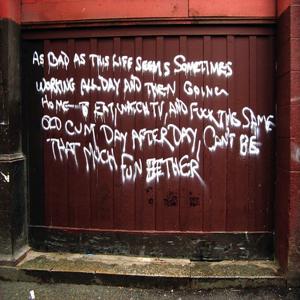 AS BAD AS THIS LIFE SEEMS SOMETIMES
WORKING ALL DAY AND THEN GOING
HOME TO EAT, WATCH TV, AND FUCK THE SAME
OLD CUM DAY AFTER DAY, CAN'T BE
THAT MUCH FUN EITHER